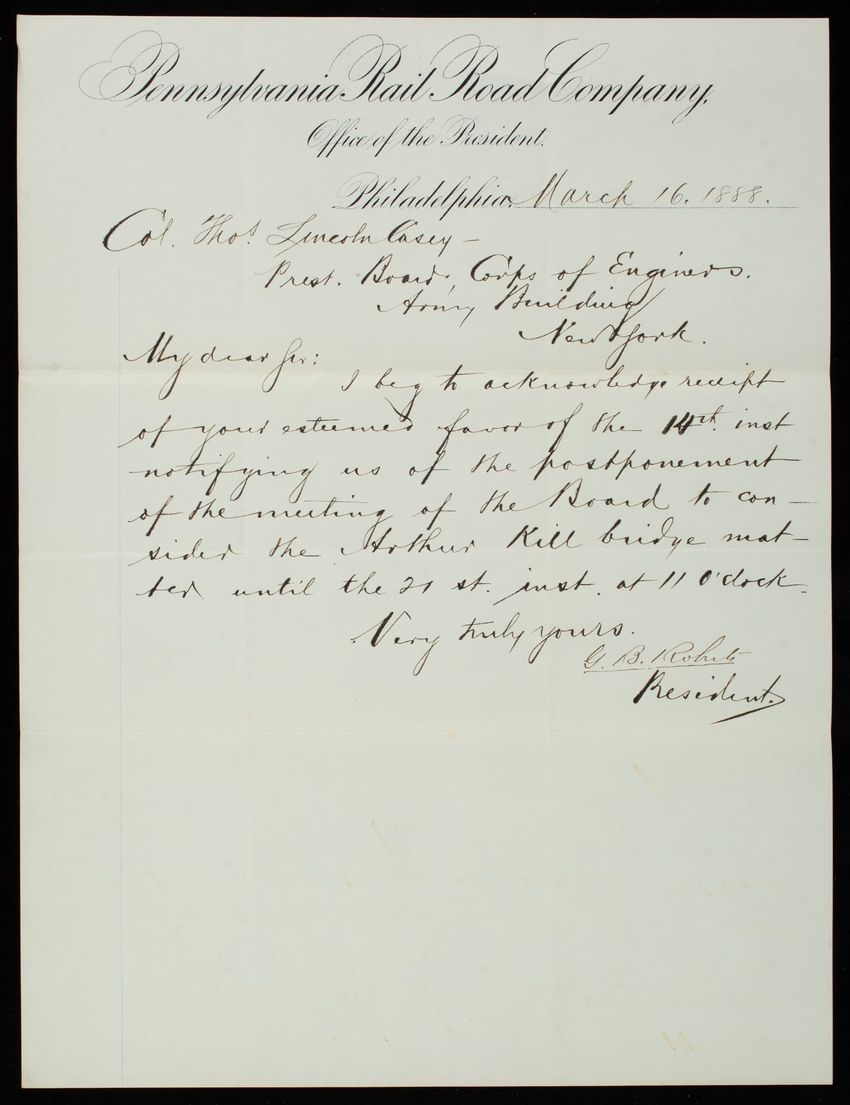 Pennsylvania Rail Road Company,
Office of the President.
Philadelphia, March 16. 1888.
Col. Thos. Lincoln Casey –
Prest. Board, Corps of Engineers.
Army Building
New York.
My dear Sir:
I beg to acknowledge receipt
of your esteemed favor of the 14th. inst
notifying us of the postponement
of the meeting of the Board to con–
sider the Arthur Kill bridge mat–
ter until the 21 st. inst. at 11 O'clock.
Very truly yours.
G. B. Roberts
President.